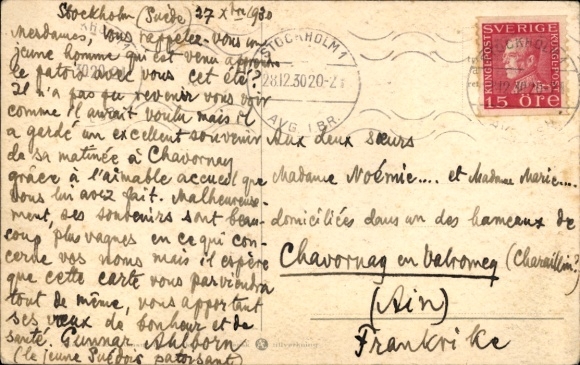 Stockholm (Suède) 27 Xbre 1930
Mesdames, vous rappelez-vous un
jeune homme qui est venu apprendre
le patois avec vous cet été?
Il n'a pas pu revenir vous voir
comme il aurait voulu mais il
a gardé un excellent souvenir
de sa matinée à Chavornay
grâce à l'aimable accueil que
vous lui avez fait. Malheureuse-
ment, ses souvenirs sont beau-
coup plus vagues en ce qui con-
cerne vos noms mais il espère
que cette carte vous parviendra
tout de même, vous apportant
ses vœux de bonheur et de
santé. Gunnar Ahlborn
(le jeune Suédois patoisant)
STOCKHOLM 1
28.12.30 20-21
AVG. 1 BR.
SVERIGE
KUNGL. POST
15 ÖRE
Aux deux sœurs
Madame Noémie.... et Madame Marie....
domiciliées dans un des hameaux de
Chavornay en Valromey (Charaillin?)
(Ain)
Frankrike